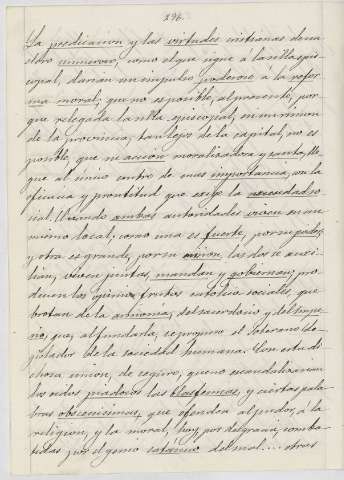 296.
La predicacion y las virtudes cristianas de un
clero numeroso, como el que sigue á la silla epis-
copal, darian un impulso poderoso á la refor
ma moral, que no es posible, al presente, por
que relegada la silla episcopal, en un rincon
de la provincia, tan lejos de la capital, no es
posible, que su accion moralizadora y santa, lle
gue al único centro de mas importancia, con la
eficacia y prontitud que exige la necesidad so-
cial. Cuando ambas autoridades viven en un
mismo local, como una es fuerte, por su poder,
y otra es grande, por su mision, las dos se auxi-
lian, viven juntas, mandan y gobiernan, pro-
ducen los opimos frutos católico sociales, que
brotan de la armonia, del sacerdocio y del impe-
rio, que, al fundarla, se propuso el soberano le-
gislador de la sociedad humana. Con esta di-
chosa union, de seguro, que no escandalizarian
los oidos piadosos las blasfemias, y ciertas pala-
bras obscenisimas, que ofenden al pudor, á la
religion, y la moral, hoy, por desgracia, comba-
tidas por el genio satánico del mal.... otras